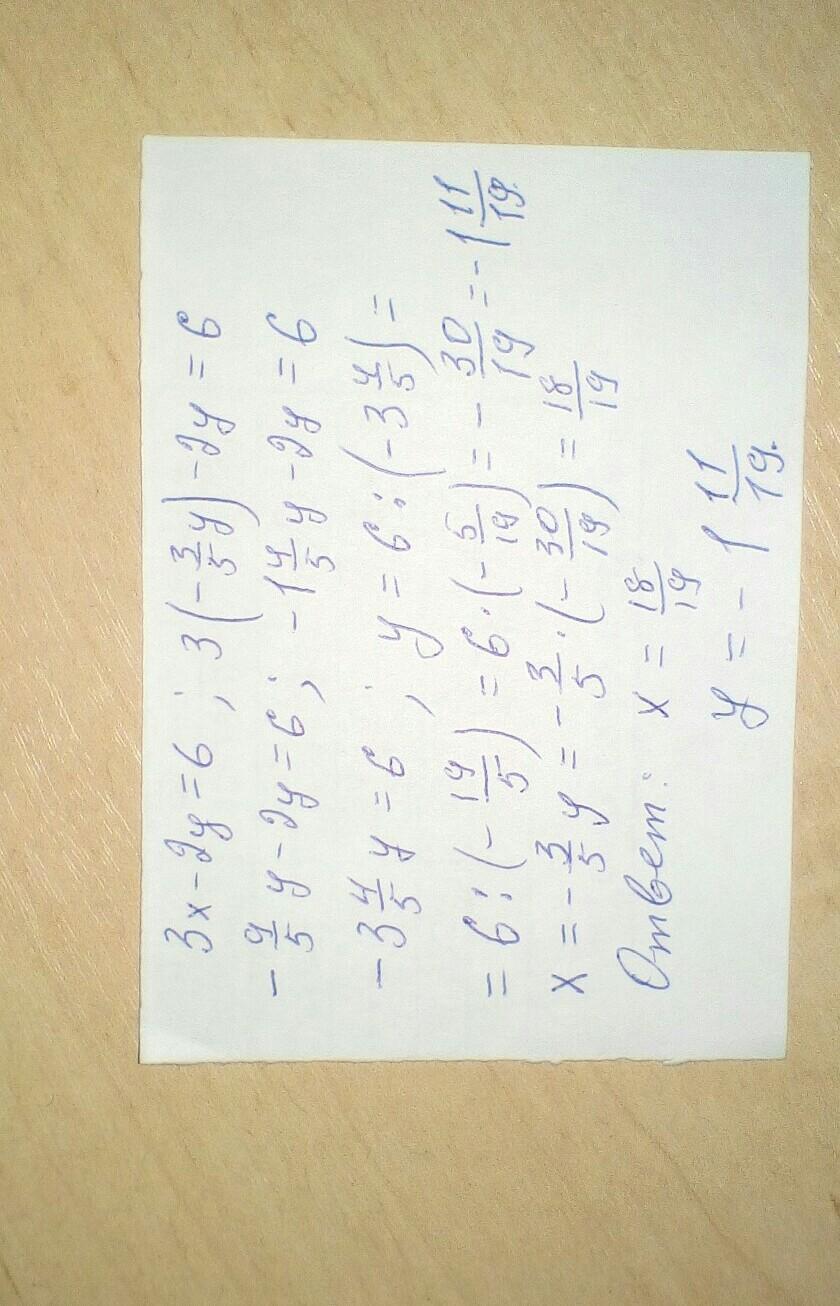 3x-2y=6 ; 3(-3/5y)-2y=6
-9/5y-2y=6; -1 4/5y-2y=6
-3 4/5y=6 ; y=6:(-3 4/5)=
=6:(-19/5)=6·(-5/19)=-30/19=-1 11/19.
x=-3/5y=-3/5·(-30/19)=18/19
Ответ: x=18/19
y=-1 11/19.